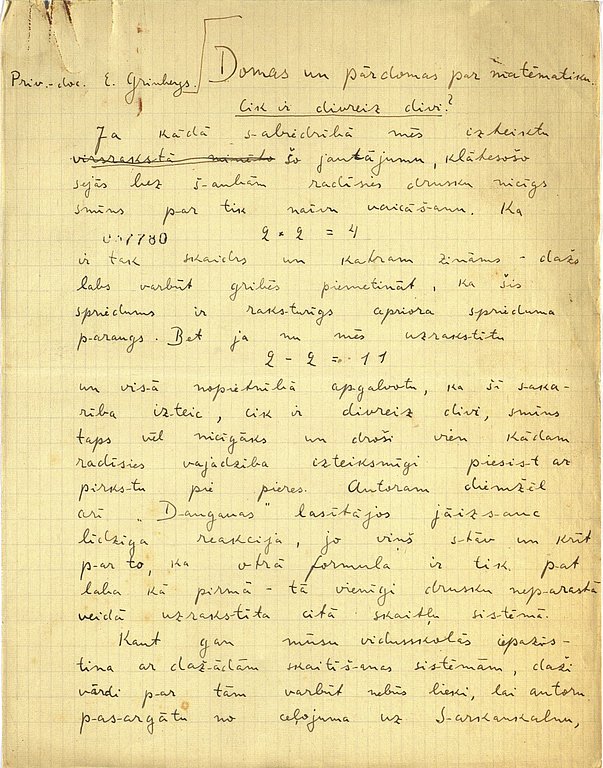 Priv.-doc. E. Grinbergs. Domas un pārdomas par matēmatiku.
Cik ir divreiz divi?
Ja kādā sabiedrībā mēs izteiktu
virsrakstā minēto šo jautājumu, klātesošo
sejās bez šaubām radīsies drusku nicīgs
smīns par tik naivu vaicāšanu. Ka
057780 2 × 2 = 4
ir tak skaidrs un katram zināms - dažs
labs varbūt gribēs piemetināt, ka šis
spriedums ir raksturīgs apriora sprieduma
paraugs. Bet ja nu mēs uzrakstītu
2 - 2 = 11
un visā nopietnībā apgalvotu, ka šī saka-
rība izteic, cik ir divreiz divi, smīns
taps vēl nicīgāks un droši vien kādam
radīsies vajadzība izteiksmīgi piesist ar
pirkstu pie pieres. Autoram diemžēl
arī „Daugavas" lasītājos jāizsauc
līdzīga reakcija, jo viņš stāv un krīt
par to, ka otrā formula ir tik pat
laba kā pirmā - tā vienīgi drusku neparastā
veidā uzrakstīta citā skaitļu sistēmā.
Kaut gan mūsu vidusskolās iepazīs-
tina ar dažādām skaitīšanas sistēmām, daži
vārdi par tām varbūt nebūs lieki, lai autoru
pasargātu no ceļojuma uz Sarkankalnu,